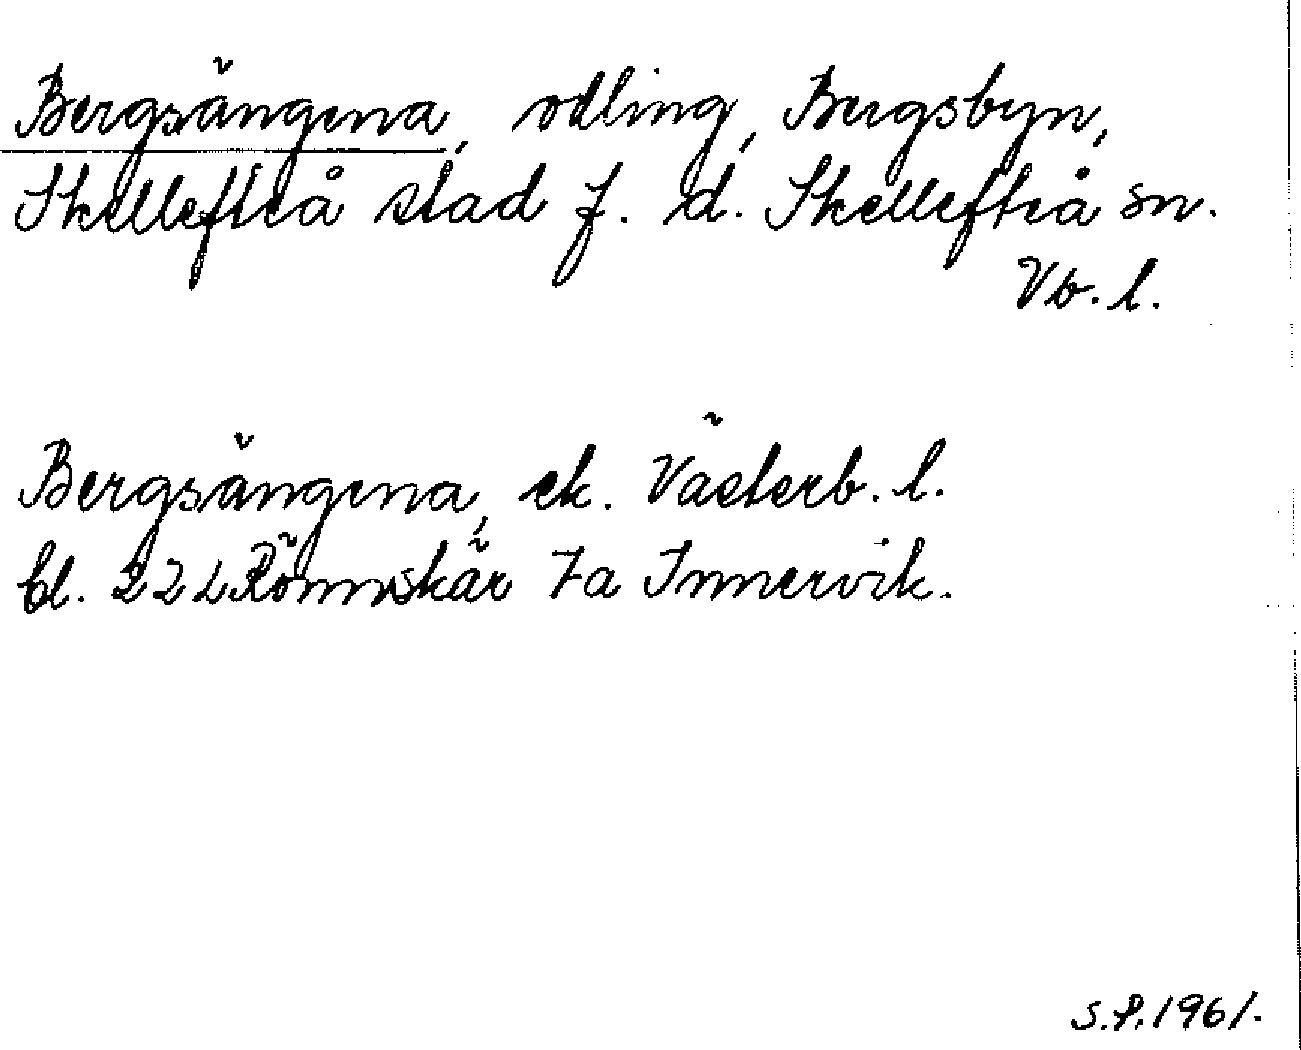 Bergsängena, odling, Bergsbyn,
Skellefteå stad f. d. Skellefteå sn.
Vb. l.
Bergsängena, ek. Västerb. l.
bl. 22 L Rönnskär 7a Innervik.
S.P. 1961.